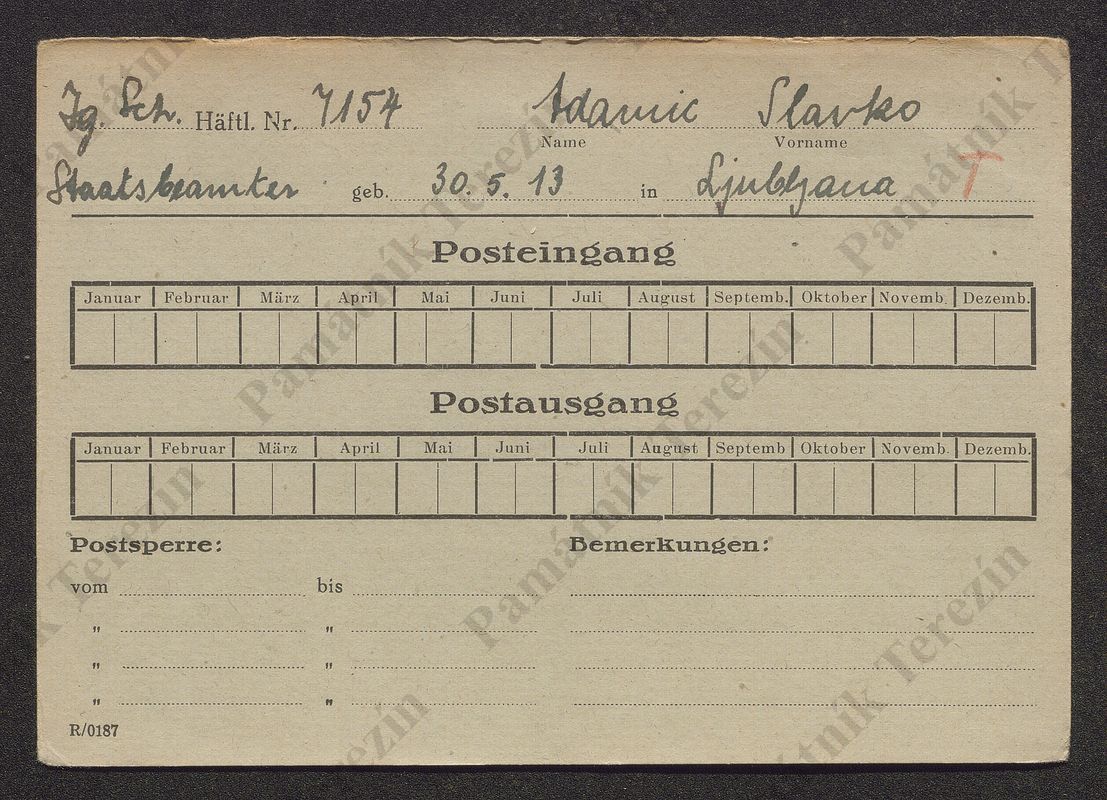 Jg. Sch. Häftl. Nr. 7154 Adamic Slavko
Name Vorname
Staatsbeamter geb. 30. 5. 13 in Ljubljana T
Posteingang
Januar Februar März April Mai Juni Juli August Septemb. Oktober Novemb. Dezemb.
Postausgang
Januar Februar März April Mai Juni Juli August Septemb Oktober Novemb. Dezemb.
Postsperre: Bemerkungen:
vom bis
" "
" "
" "
R/0187
Památník Terezín